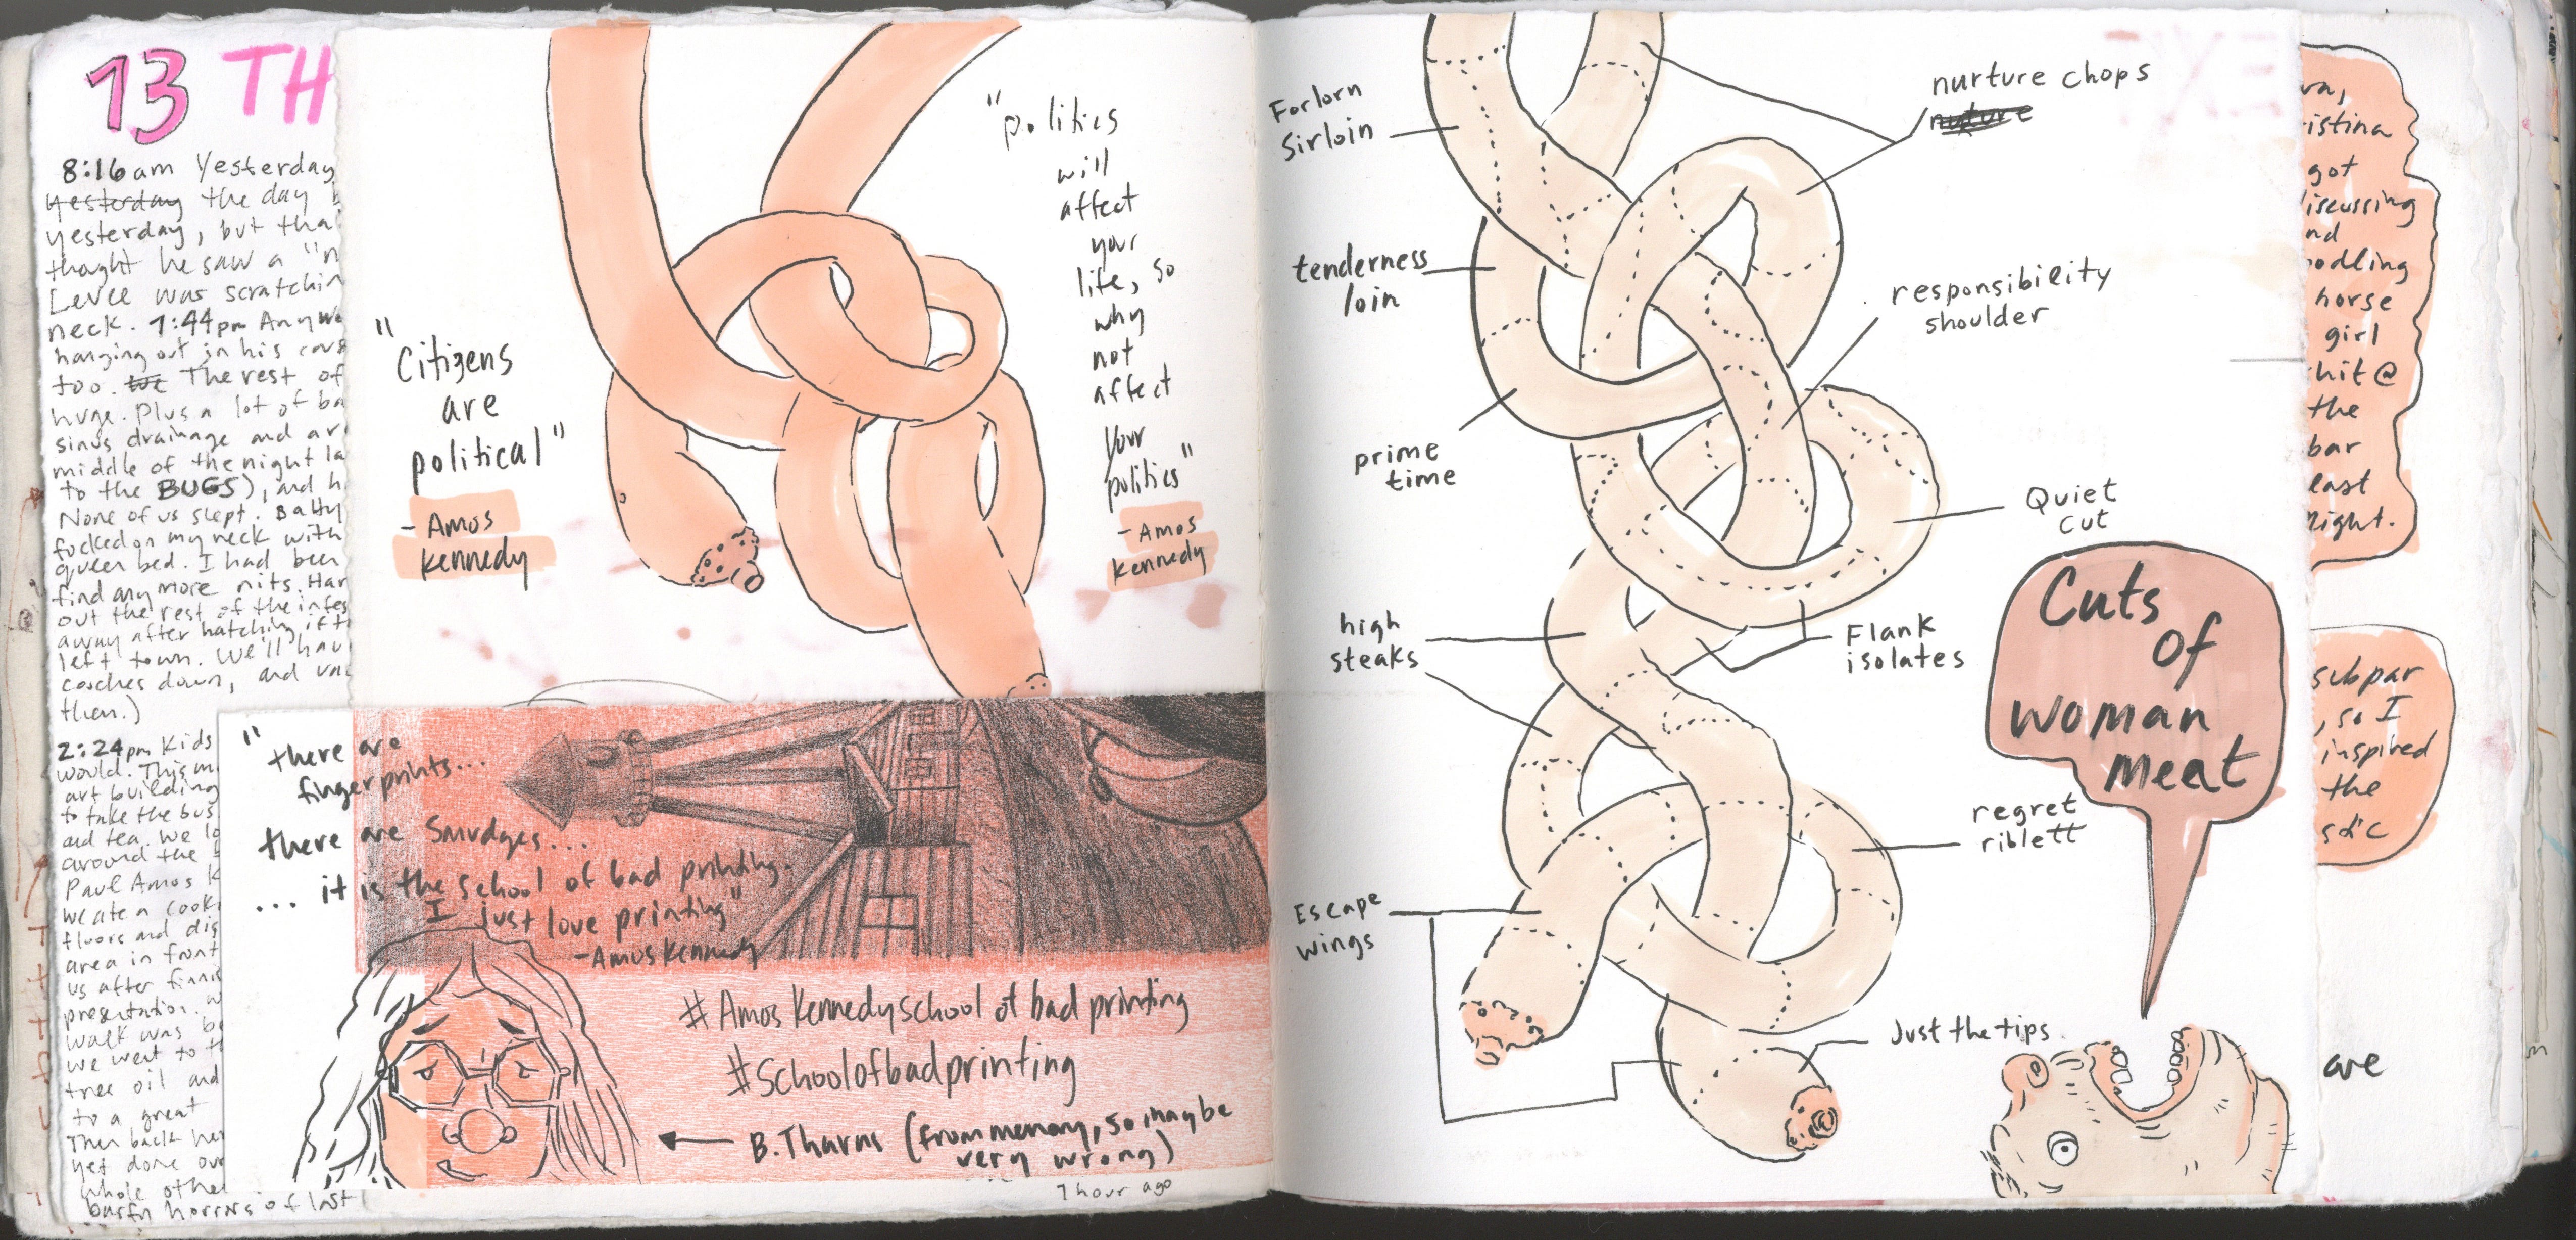 13 TH
8:16am Yesterday
yesterday the day b
yesterday, but tha
thaght he saw a "n
Levee was scratchin
neck. 1:44pm Anyw
hanging out in his
too. The rest of
huge. Plus a lot of ba
sinus drainage and ar
middle of the night la
to the BUGS), and h
None of us slept. Batty
focked on my neck with
queen bed. I had been
find any more nits. Har
out the rest of the infes
away after hatching if t
left town. We'll hav
coaches down, and vac
then.)
2:24pm Kids
would. This m
art building
to take the bus
and tea. We lo
around the
Paul Amos K
we ate a cook
floors and dis
area in front
us after finnis
presentation. w
walk was b
we went to th
tree oil and
to a great
Then back her
yet done our
whole other
barfn horrors of last
"Citizens
are
political"
- Amos
Kennedy
"politics
will
affect
your
life, so
why
not
affect
your
politics"
- Amos
Kennedy
"there are
fingerprints...
there are smudges...
... it is the school of bad printing.
I just love printing"
-Amos Kennedy
#AmosKennedyschool of bad printing
#Schoolofbadprinting
B. Tharns (from memory, so maybe
very wrong)
1 hour ago
Forlorn
Sirloin
nurture chops
nuture
tenderness
loin
responsibility
shoulder
prime
time
Quiet
cut
high
steaks
Flank
isolates
Cuts
of
woman
meat
regret
riblett
Escape
wings
Just the tips
ra,
ristina
got
discussing
nd
oodling
horse
girl
hit @
the
bar
last
night.
subpar
, so I
inspired
the
sdic
are